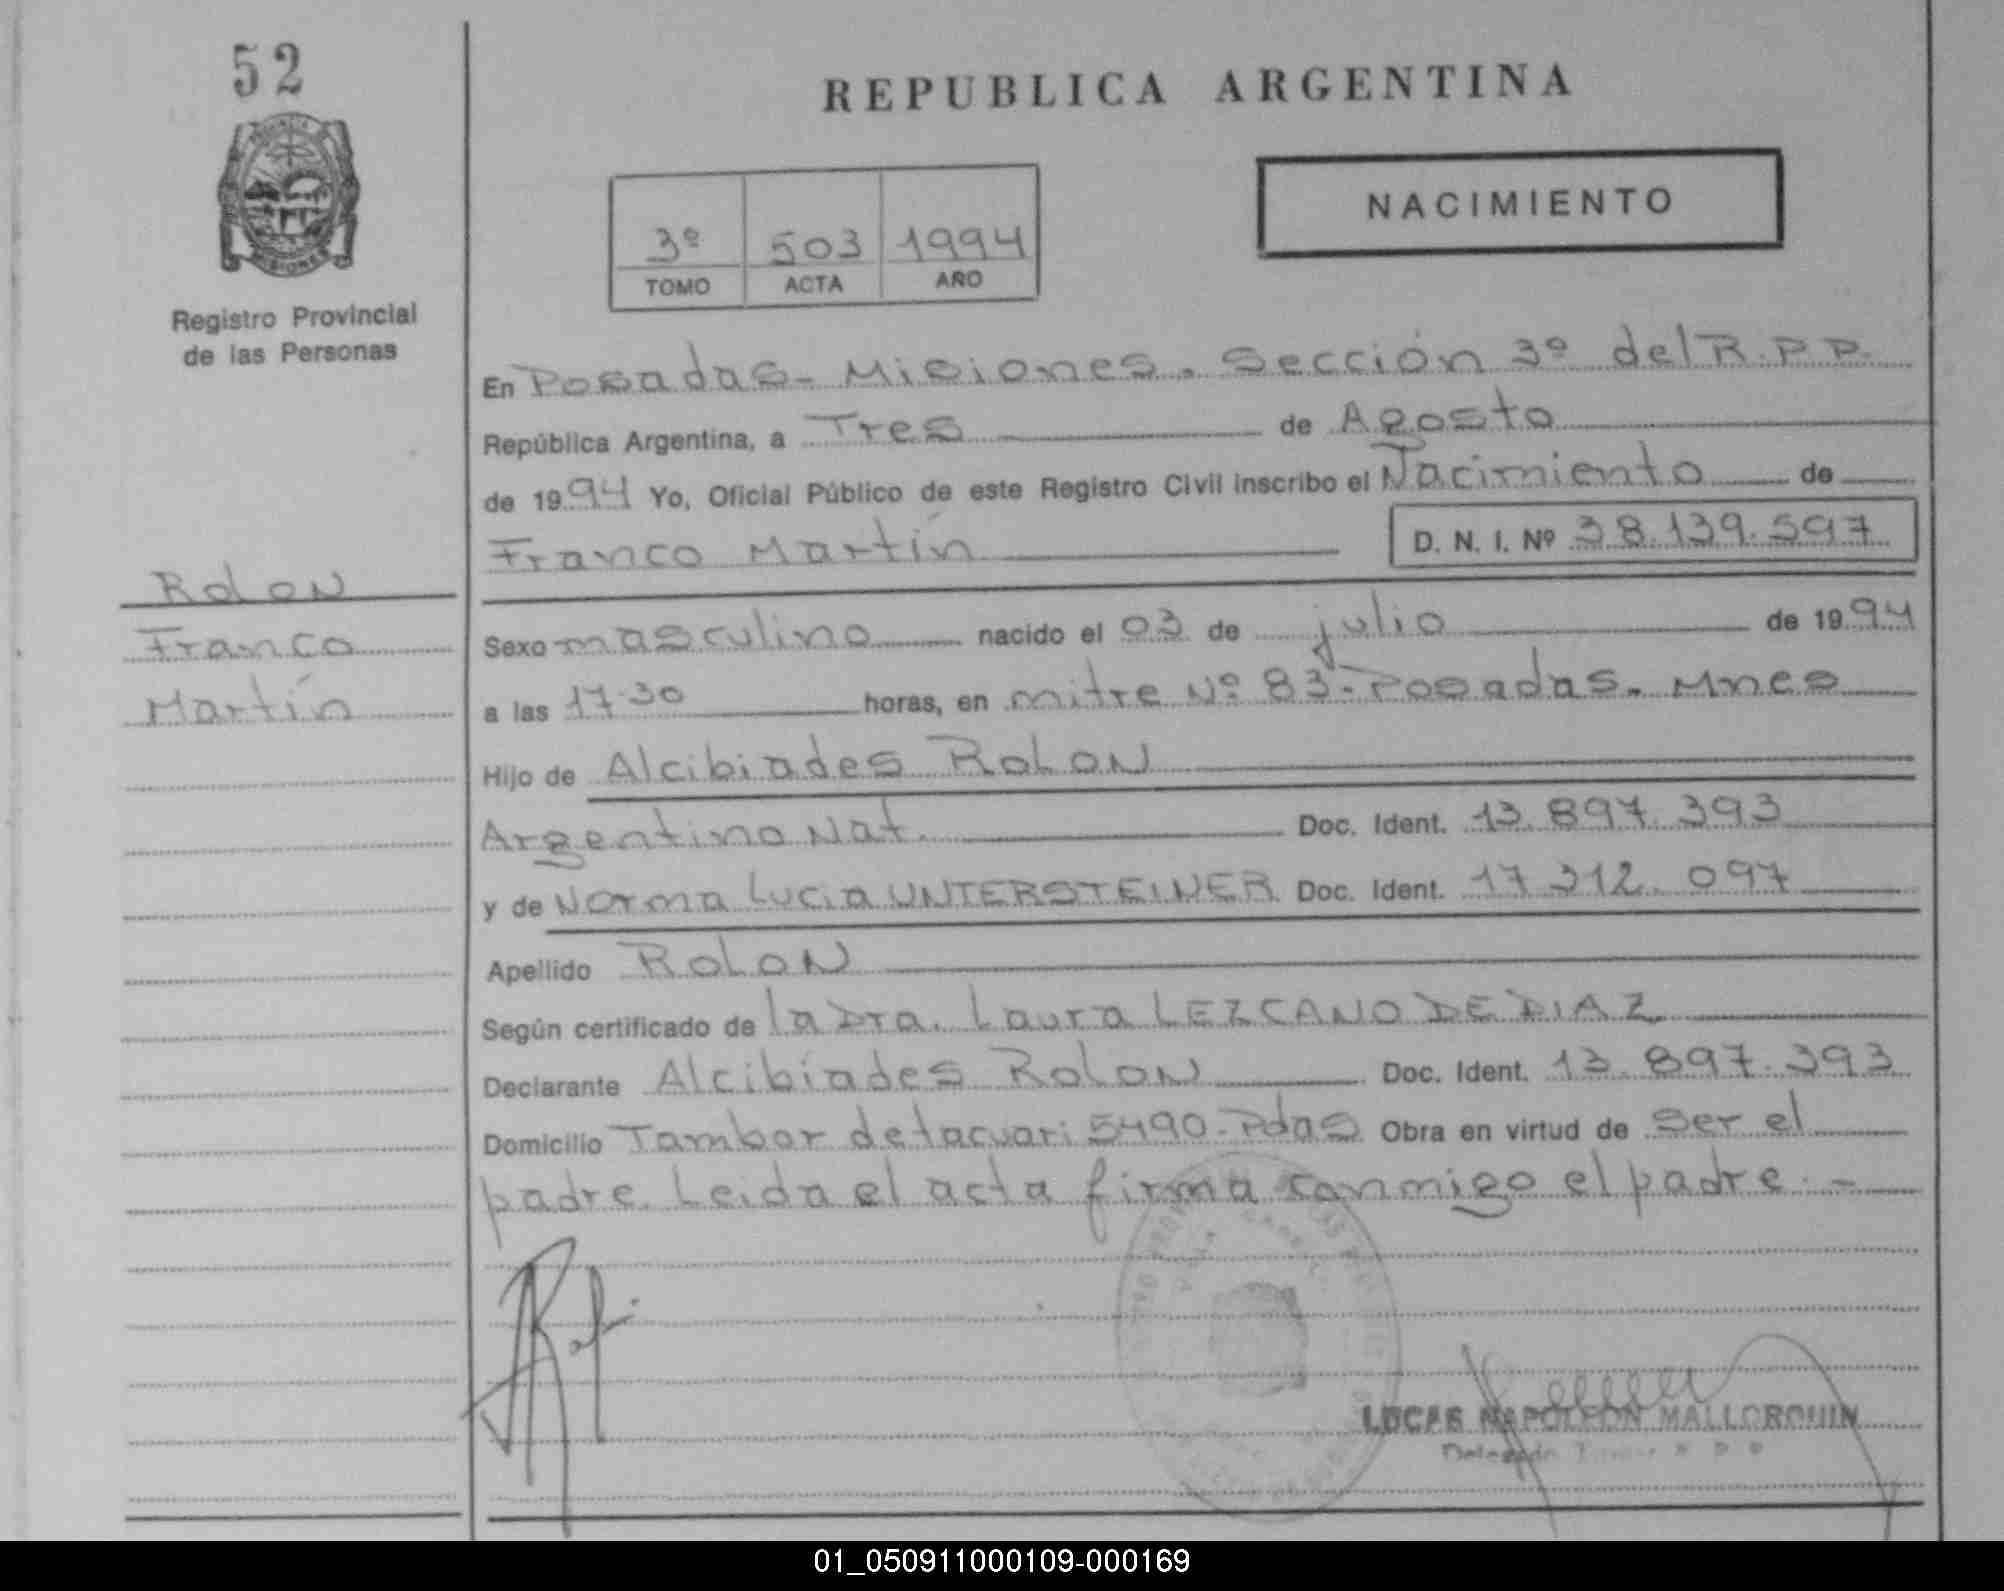 52
REPUBLICA ARGENTINA
NACIMIENTO
3º 503 1994
TOMO ACTA AÑO
MISIONES
Registro Provincial
de las Personas
En Posadas - Misiones. Sección 3º del R.P.P.
República Argentina, a Tres de Agosto
de 1994 Yo, Oficial Público de este Registro Civil inscribo el Nacimiento de
Franco Martín D. N. I. Nº 38.139.597
Rolon
Franco
Martín
Sexo masculino nacido el 03 de julio de 1994
a las 17.30 horas, en mitre Nº 83 - Posadas. Mnes
Hijo de Alcibiades Rolon
Argentino Nat. Doc. Ident. 13.897.393
y de Norma Lucia UNTERSTEINER Doc. Ident. 17.312.097
Apellido Rolon
Según certificado de la Dra. Laura LEZCANO DE DIAZ
Declarante Alcibíades Rolon Doc. Ident. 13.897.393
Domicilio Tambor de tacuari 5490 - Pdas Obra en virtud de ser el
padre. Leida el acta firma conmigo el padre. -
LUCAS NAPOLEON MALLORQUIN
01_050911000109-000169